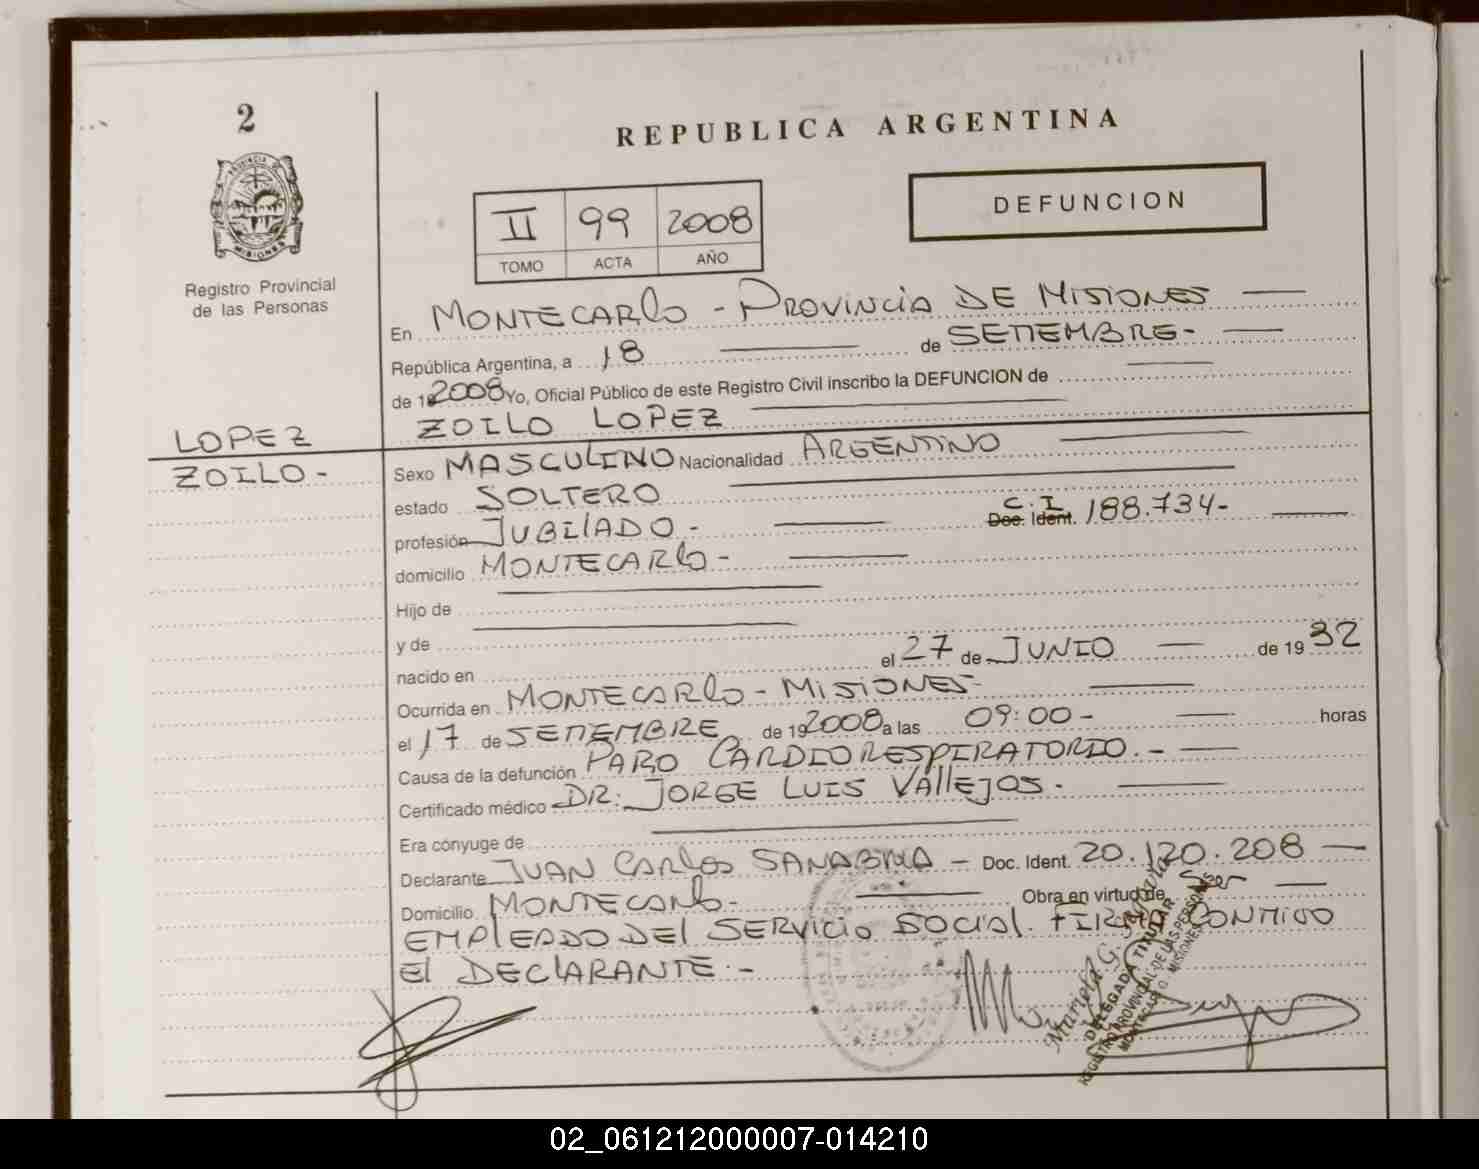 2
REPUBLICA ARGENTINA
PROVINCIA DE
MISIONES
Registro Provincial
de las Personas
II 99 2008
TOMO ACTA AÑO
DEFUNCION
En MONTECARLO - PROVINCIA DE MISIONES
República Argentina, a 18 de SETIEMBRE-
de 2008 Yo, Oficial Público de este Registro Civil inscribo la DEFUNCION de
ZOILO LOPEZ
LOPEZ
ZOILO -
Sexo MASCULINO Nacionalidad ARGENTINO
estado SOLTERO
profesión JUBILADO - C.I Doc. Ident. 188.734-
domicilio MONTECARLO -
Hijo de
y de
nacido en el 27 de JUNIO de 1932
Ocurrida en MONTECARLO - MISIONES-
el 17 de SETIEMBRE de 19 2008 a las 09:00 - horas
Causa de la defunción PARO CARDIORESPIRATORIO. -
Certificado médico DR. JORGE LUIS VALLEJOS.
Era cónyuge de
Declarante JUAN CARLOS SANABRIA - Doc. Ident. 20.120.208
Domicilio MONTECARLO- Obra en virtud de Ser
EMPLEADO DEL SERVICIO SOCIAL. FIRMA CONMIGO
El DECLARANTE. -
DELEGADA TITULAR
REGISTRO PROVINCIAL DE LAS PERSONAS
MONTECARLO MISIONES
02_061212000007-014210